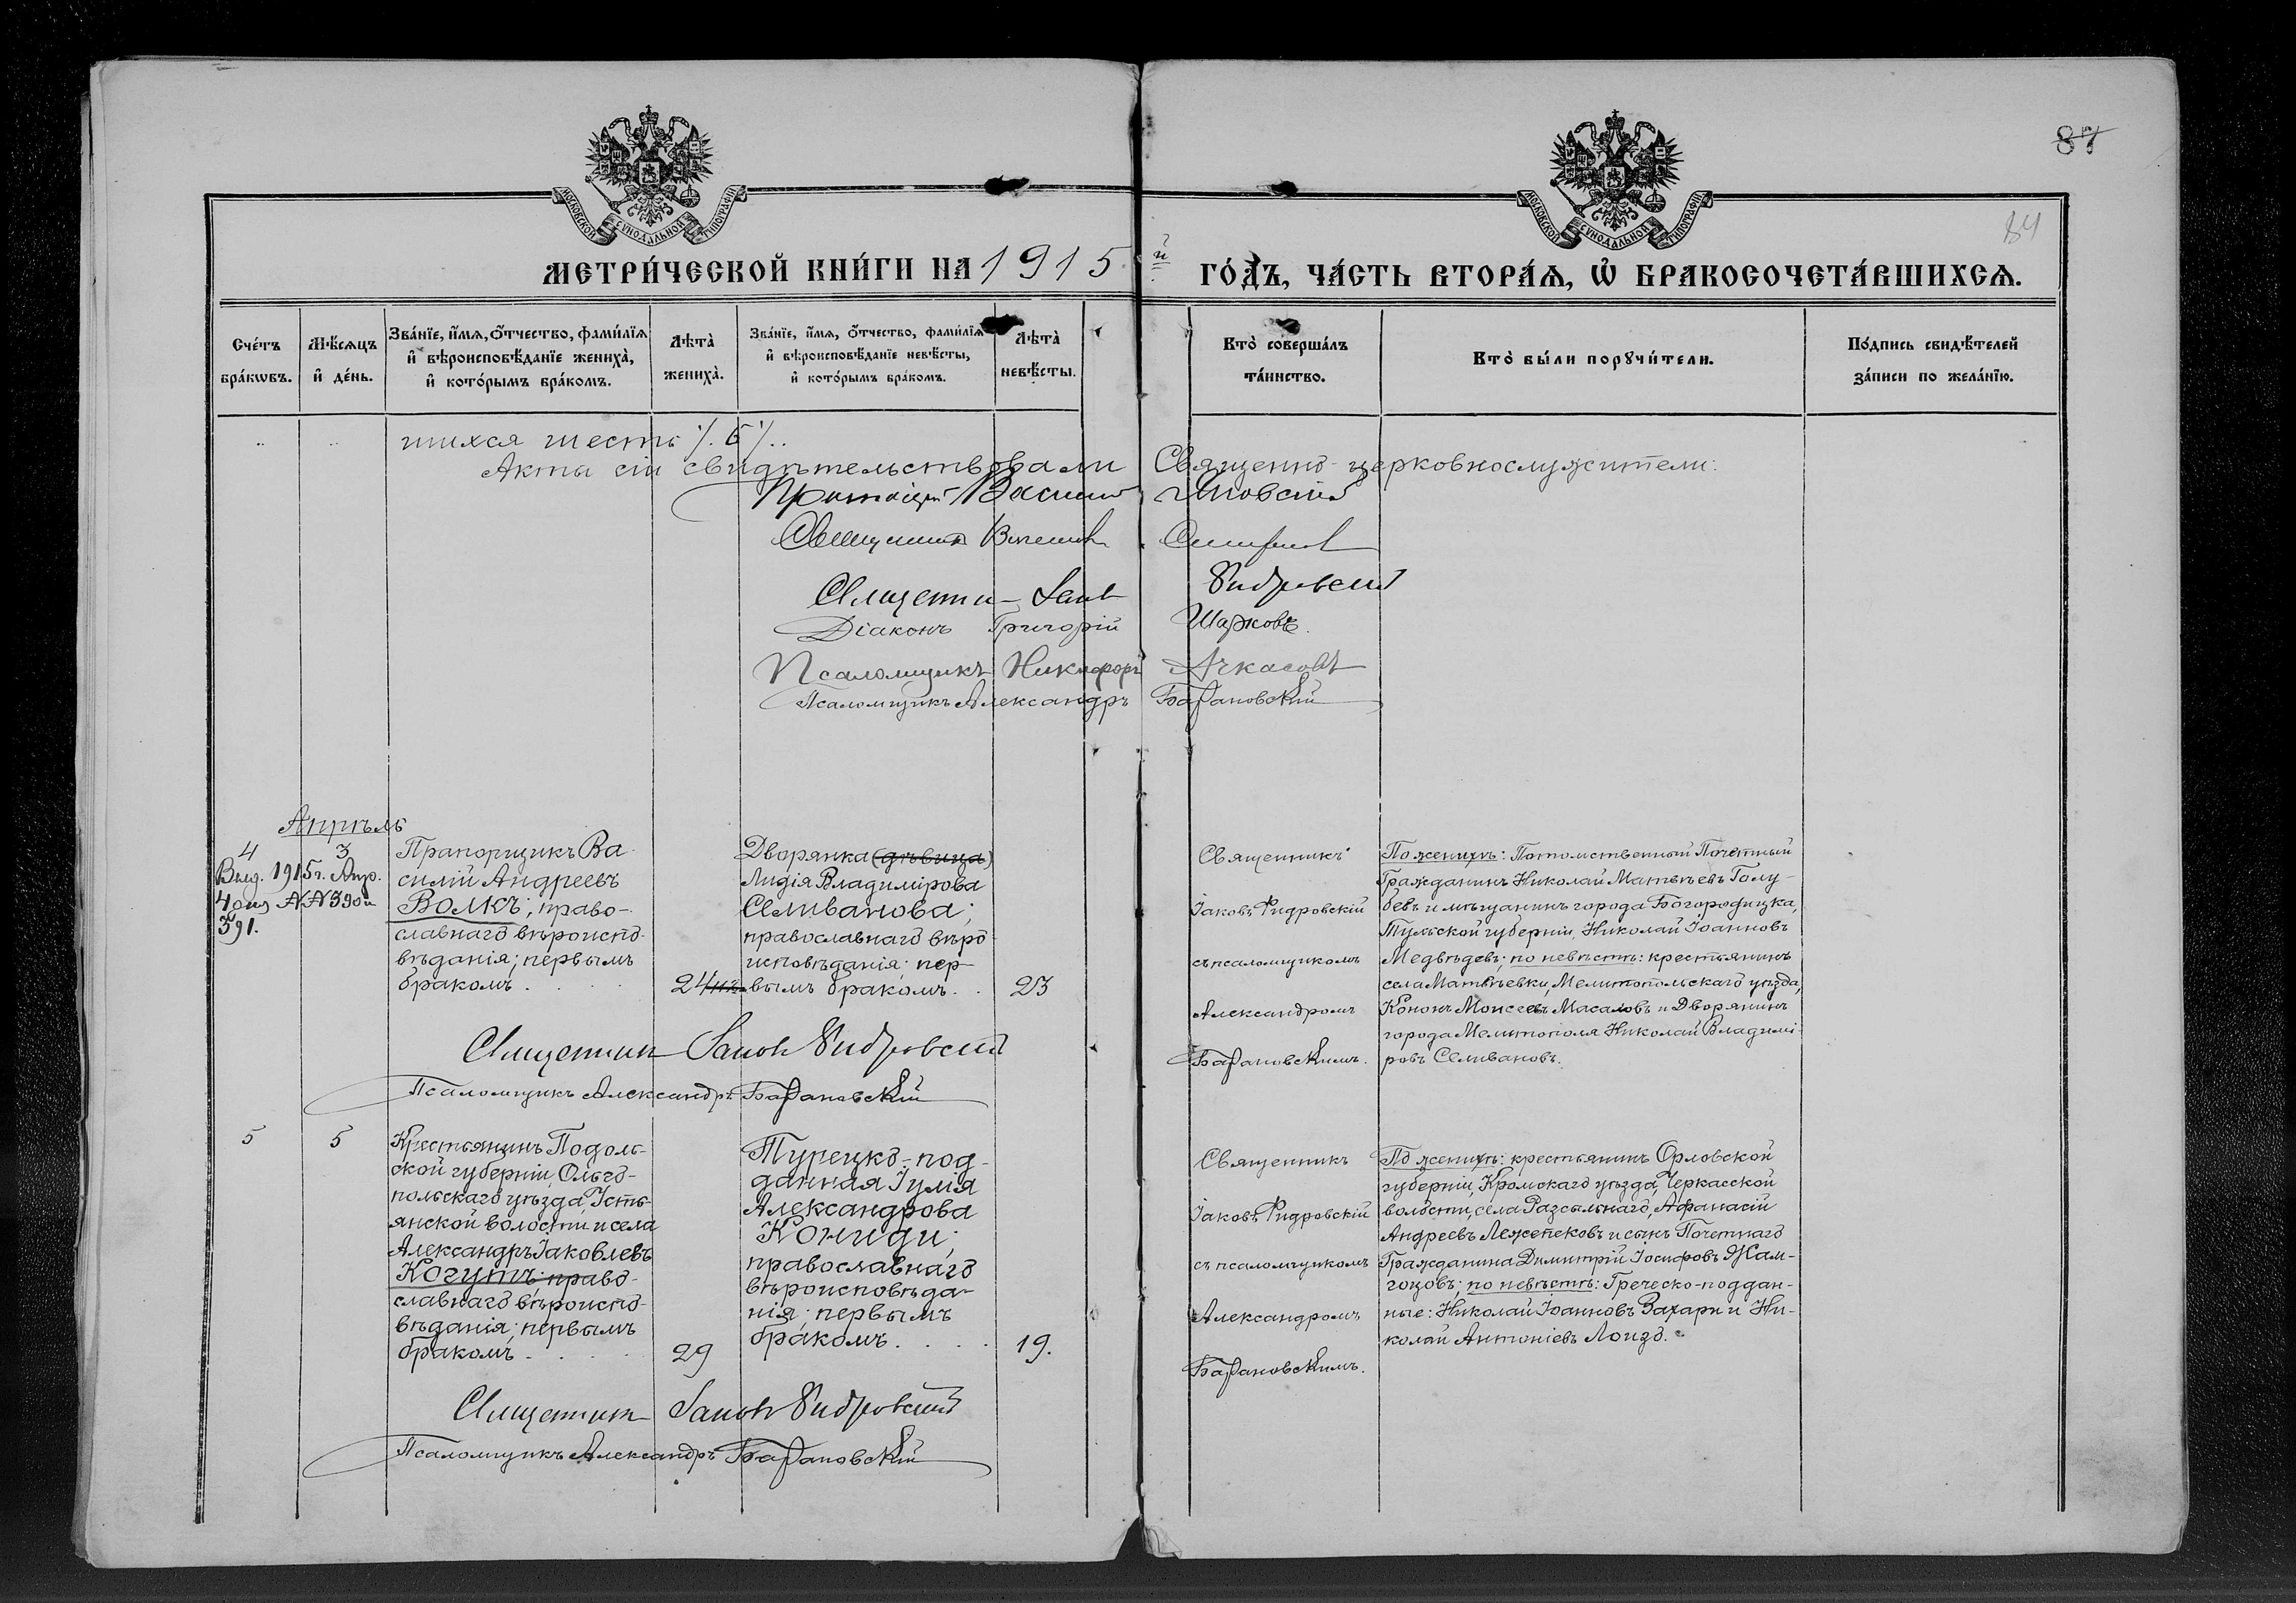 87
84
МОСКОВСКОЙ СѴНОДАЛЬНОЙ ТИПОГРАФІИ
МОСКОВСКОЙ СѴНОДАЛЬНОЙ ТИПОГРАФІИ
МЕТРИ́ЧЕСКОЙ КНИ́ГИ НА 1915 й ГО́ДЪ, ЧА́СТЬ ВТОРА́Ѧ, Ѽ БРАКОСОЧЕТА́ВШИХСѦ.
Сче́тъ
бра́кѡвъ.
Мѣ́сѧцъ
и҆ де́нь.
Зва́нїе, и҆́мѧ, ѻ҆́тчество, фами́лїѧ
и҆ вѣроисповѣ́данїе жениха̀,
и҆ кото́рымъ бра́комъ.
Лѣта̀
жениха̀.
Зва́нїе, и҆́мѧ, ѻ҆́тчество, фами́лїѧ
и҆ вѣроисповѣ́данїе невѣ́сты,
и҆ кото́рымъ бра́комъ.
Лѣта̀
невѣ́сты.
Кто̀ соверша́лъ
та́инство.
Кто̀ бы́ли порꙋчи́тели.
По́дпись свидѣ́телей
за́писи по жела́нїю.
шихся шесть ./. 6 ./.
Акты сіи свидѣтельствовали Священно-церковнослужители:
Священникъ
Діаконъ Григорій Шарковъ.
Псаломщикъ Никифоръ Ачкасовъ
Псаломщикъ Александръ Барановскій
Апрѣль
4
3
Выд. 1915 г. Апр.
4 дня №№ 390 и
391.
Прапорщикъ Ва-
силій Андреевъ
Волкъ; право-
славнаго вѣроиспо-
вѣданія; первымъ
бракомъ . . . .
24
Дворянка (дѣвица)
Лидія Владимірова
Селиванова;
православнаго вѣро-
исповѣданія; пер-
вымъ бракомъ . .
23
Священникъ
Іаковъ Фидровскій
съ псаломщикомъ
Александромъ
Барановскимъ.
По женихѣ: Потомственный Почетный
Гражданинъ Николай Матвѣевъ Голу-
бевъ и мѣщанинъ города Богородицка,
Тульской губерніи, Николай Іоанновъ
Медвѣдевъ; по невѣстѣ: крестьянинъ
села Матвѣевки, Мелитопольскаго уѣзда,
Кононъ Моисеевъ Масаловъ и Дворянинъ
города Мелитополя Николай Владимі-
ровъ Селивановъ.
Священникъ Іаковъ Фидровскій
Псаломщикъ Александръ Барановскій
5
5
Крестьянинъ Подоль-
ской губерніи, Ольго-
польскаго уѣзда, Усть-
янской волости и села
Александръ Іаковлевъ
Когутъ; право-
славнаго вѣроиспо-
вѣданія; первымъ
бракомъ . . . .
29
Турецко-под-
данная Іулія
Александрова
Кониди;
православнаго
вѣроисповѣда-
нія; первымъ
бракомъ . . . .
19.
Священникъ
Іаковъ Фидровскій
съ псаломщикомъ
Александромъ
Барановскимъ.
По женихѣ: крестьянинъ Орловской
губерніи, Кромскаго уѣзда, Черкасской
волости, села Разсыльнаго, Афанасій
Андреевъ Лежепековъ и сынъ Почетнаго
Гражданина Димитрій Іосифовъ Жам-
гоцовъ; по невѣстѣ: Греческо-поддан-
ные: Николай Іоанновъ Захари и Ни-
колай Антоніевъ Лоизо.
Священникъ Іаковъ Фидровскій
Псаломщикъ Александръ Барановскій